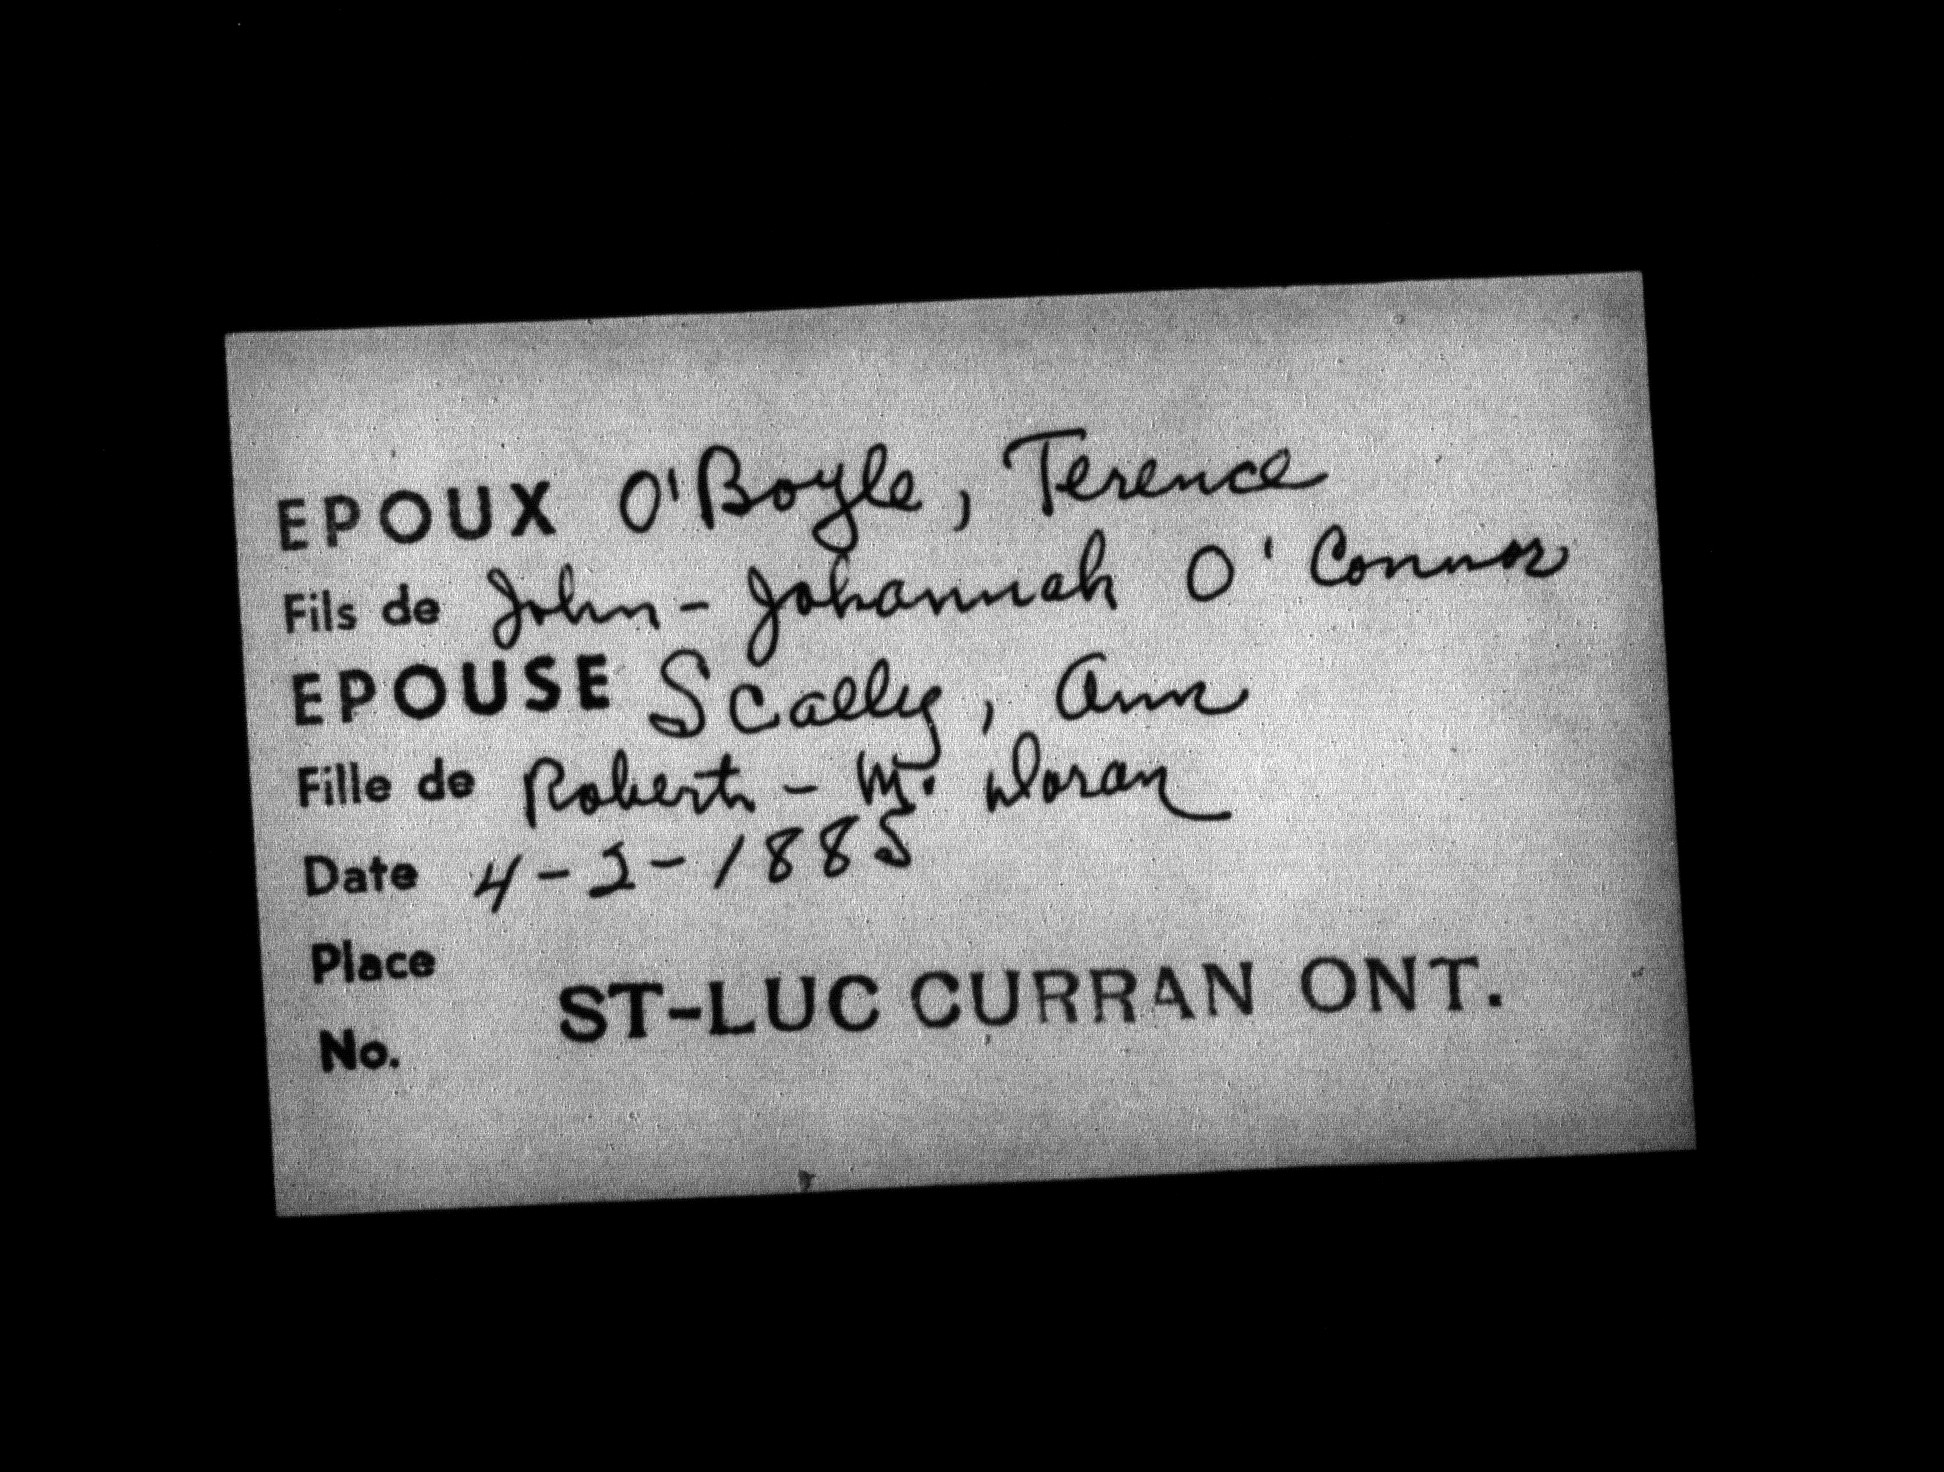 EPOUX O'Boyle, Terence
Fils de John - Johannah O'Connor
EPOUSE Scally, Ann
Fille de Robert - M. Doran
Date 4-2-1885
Place
ST-LUC CURRAN ONT.
No.